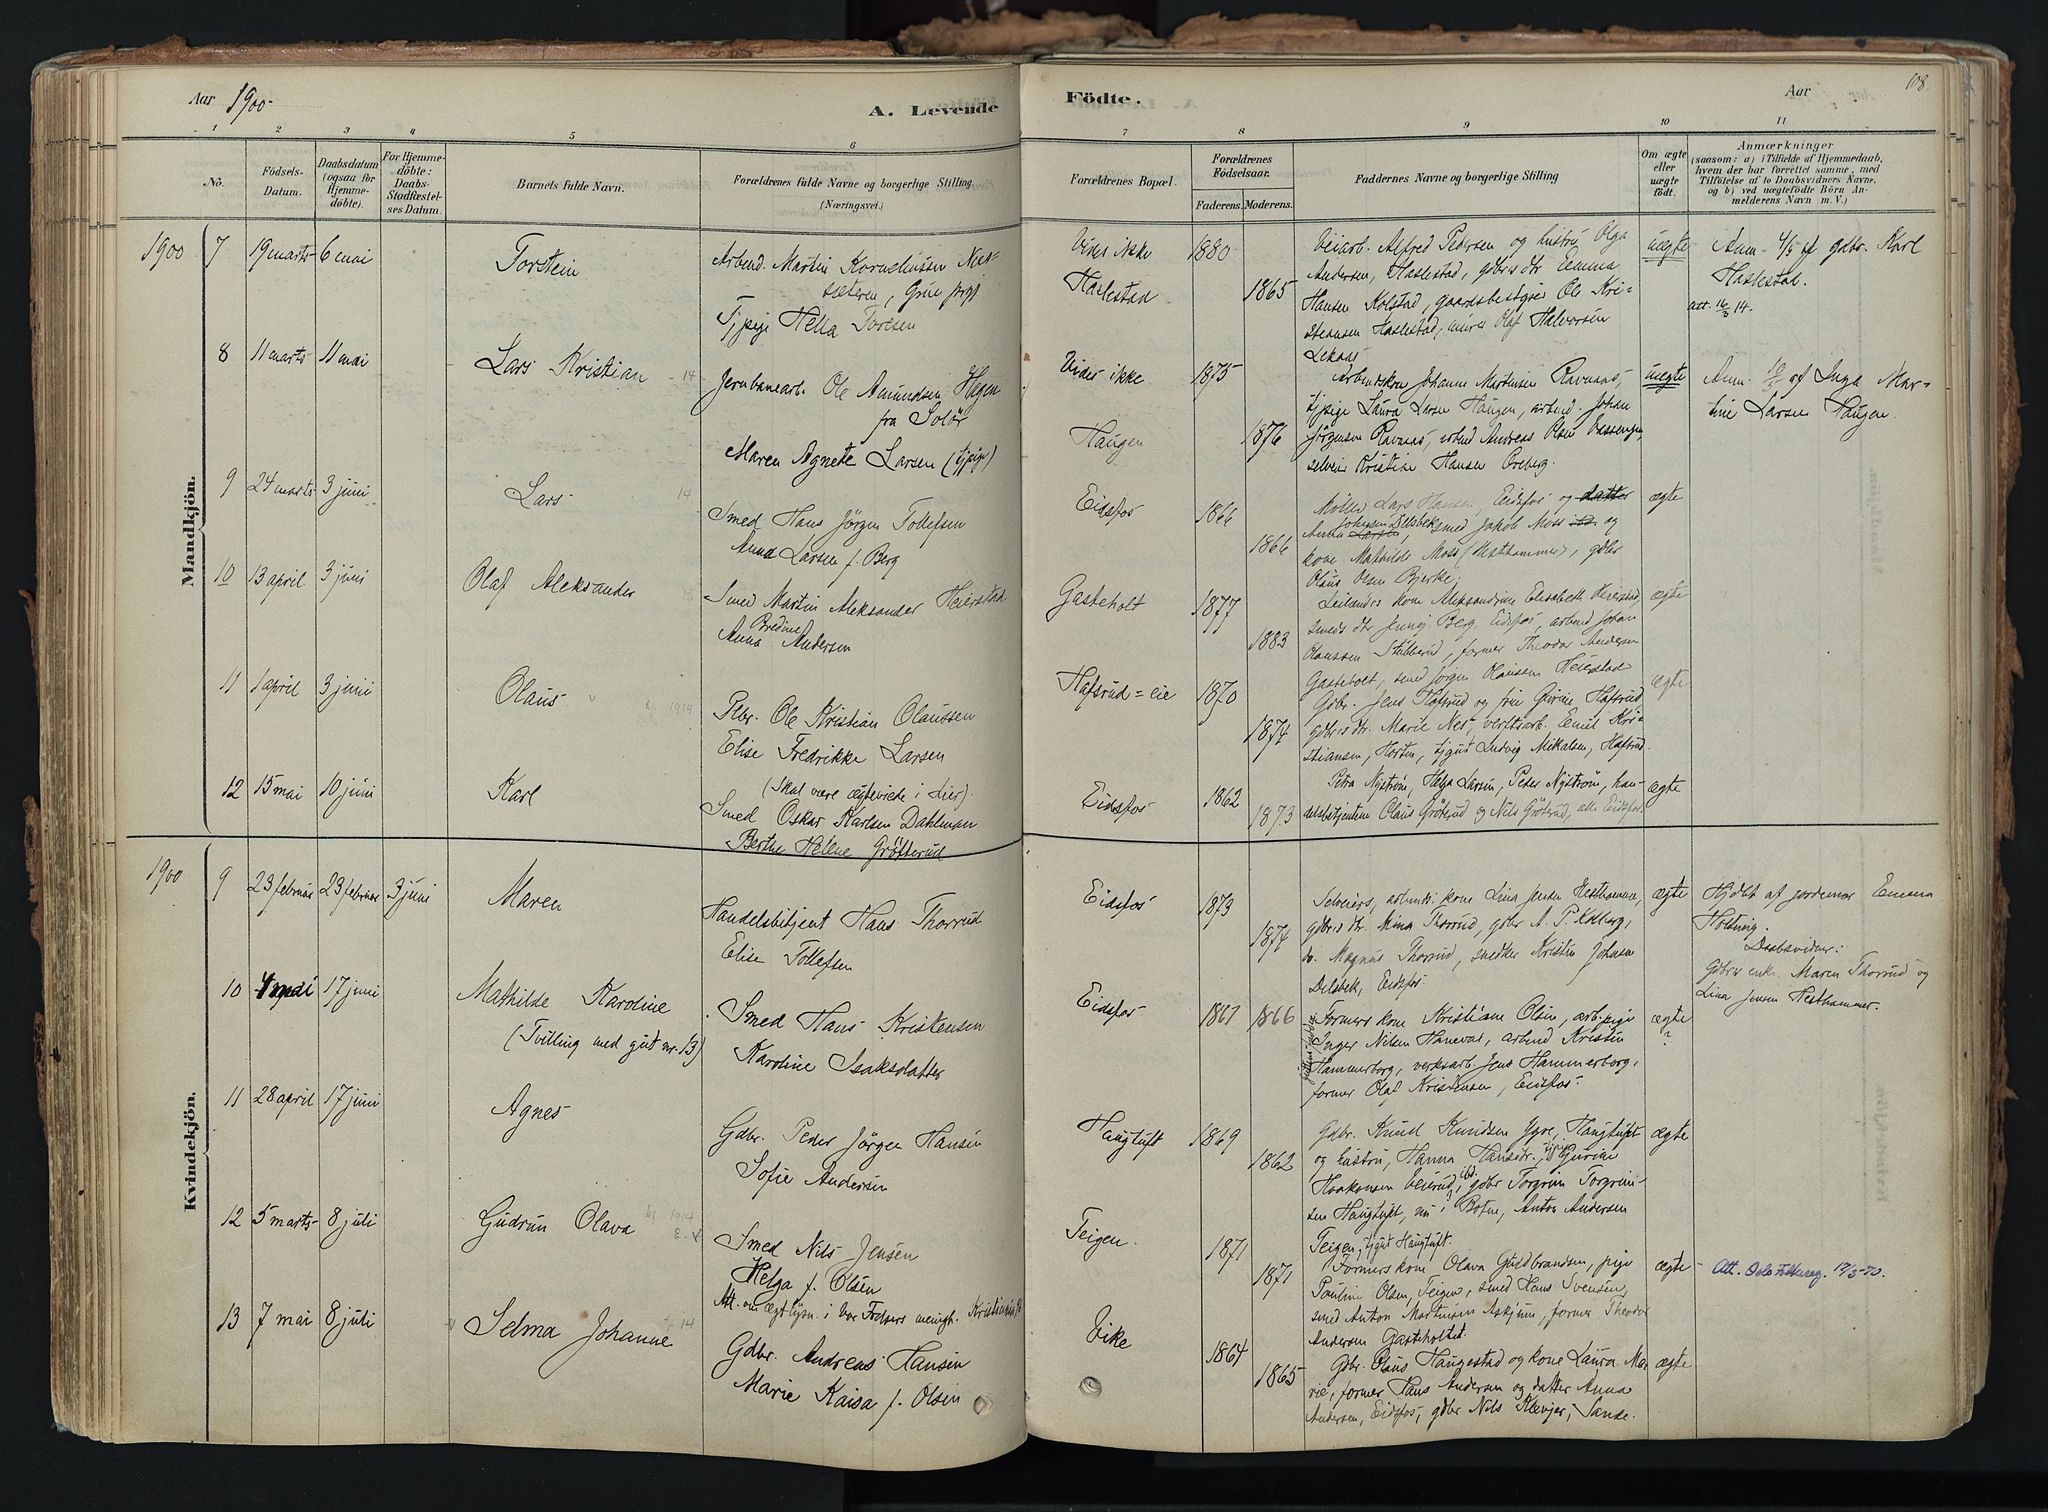 Aar 1900.
A. Levende
Födte.
Aar
108.
1 2 3 4 5 6 7 8 9 10 11
No.
Födsels-Datum.
Daabsdatum (ogsaa for Hjemme-döbte).
For Hjemme-döbte: Daabs-Stadfæstel-ses Datum.
Barnets fulde Navn.
Forældrenes fulde Navne og borgerlige Stilling.
(Næringsvei.)
Forældrenes Bopæl.
Forældrenes Födselsaar.
Faderens. Moderens.
Faddernes Navne og borgerlige Stilling
Om ægte eller uægte födt.
Anmærkninger
(saasom: a) i Tilfælde af Hjemmedaab,
hvem der har forrettet samme, med
Tilföielse af to Daabsvidners Navne.
og b) ved uægtefödte Börn An-
melderens Navn m. V.)
Mandkjön.
1900 7 19 marts 6 mai Torstein
Arbeid. Martin Korneliussen
sæteren, Grue prgj
Tjpige Hella Torsen
Vides ikke 1880
Haslestad 1865
Veiarb. Alfred Pedersen og hustru Olga
Andersen, Haslestad, gdbrs dtr Emma
Hansen Kolstad, gaardsbestyrer Ole Kri-
stiansen Haslestad, murer Olaf Halvorsen
Lekaas
uægte
Anm. 4/5 af gdbr. Karl
Haslestad.
att. 16/3 14.
8 11 marts 11 mai Lars Kristian 14
Jernbanearb. Ole Amundsen Hagen
fra Solör
Maren Agnete Larsen (tjpige)
Vides ikke 1875
Haugen 1876
Arbeidskone Johanne Martinsen Ravnaas,
tjpige Laura Larsen Haugen, arbeid. Johan
Jörgensen Ravnaas, arbeid Andreas Olsen
selveier Kristine Hansen Oreberg.
uægte
Anm. af Inga Mar-
tine Larsen Haugen.
9 24 marts 3 juni Lars 14
Smed Hans Jörgen Tollefsen
Anna Larsen f. Berg
Eidsfos 1866
1866
Möller Lars Hansen, Eidsfos og datter
Anna Larsen Johansen Delsbek, smed Jakob Moss og
kone Mathilde Moss (Hesthammer), gdbr
Olaus Olsen Bjerke,
ægte
10 13 april 3 juni Olaf Aleksander
Smed Martin Aleksander Heierstad
Anna Bredine Andersen
Gasteholt 1877
1883
Leilænd. kone Aleksandrine Elisabeth Heierstad,
smeds dtr Jenny Berg, Eidsfos, arbeid Johan
Olaussen Stubberud, former Theodor Andersen
Gasteholt, smed Jörgen Olaussen Heierstad
ægte
11 1 april 3 juni Olaus 1914
Plbr. Ole Kristian Olaussen
Elise Fredrikke Larsen
(Skal være ægteviede i Hier).
Hafsrud=eie 1870
1874
Gdbr. Jens Hafsrud og frue Gurine Hafsrud
gdbrs dtr. Marie Nes, verftsarb. Emil Kri-
stiansen, Horten, tjgut Ludvig Mikalsen, Hafsrud.
ægte
12 15 mai 10 juni Karl
Smed Oskar Karlsen Dahlman
Berthe Helene Gröfterud
Eidsfos 1862
1873
Petra Nyström, Helga Larsen, Peder Nyström, han-
delsbetjentene Olaus Gröterud og Nils Gröterud, alle Eidsfos.
ægte
Kvindekjön.
1900 9 23 februar 23 februar 3 juni Maren
Handelsbetjent Hans Thorrud
Elise Tollefsen
Eidsfos 1873
1874
Selveiers, arbeids. kone Lina Jensen Hesthammer,
gdbrs dtr. Mina Thorrud, gdbr A. P. Kolberg,
do. Magnus Thorrud, snedker Kristin Johnsen
Delsbek, Eidsfos.
ægte
Hjdbt af jordemor Emma
Holtning.
Daabsvidner:
Gdbrs enke Maren Thorrud og
Lina Jensen Hesthammer.
10 4 mai 17 juni Mathilde Karoline
(Tvilling med gut nr. 13)
Smed Hans Kristensen
Karoline Isaksdatter
Eidsfos 1867 1866
Formers kone Kristiane Olsen, arb. pige
Inger Nilsen Haneval, arbeid Kristin
Hammerborg, verksarb. Jens Hammerborg,
former Olaf Kristensen, Eidsfos.
ægte?
11 28 april 17 juni Agnes
Gdbr. Peder Jörgen Hansen
Sofie Andersen
Haugtuft 1869
1862
Gdbr. Knud Knudsen Gyve, Haugtuft
og hustru, Hanna Hansdr. Gurine
Haakonsen ibd. gdbr Torgrim Torgrim-
sen Haugtuft, nu i Botne, Anton Andersen
Teigen, tjgut Haugtuft.
ægte
12 5 marts 8 juli Gudrun Olava 1914
Smed Nils Jensen
Helga f. Olsen
Teigen. 1871
1871
Formers kone Olava Guldbrandsen, pige
Pauline Olsen, Teigen, smed Hans Svensen,
smed Anton Martinsen Askjum, former Theodor
Andersen Gasteholtet.
ægte
Att. Oslo Folkereg. 17/3-70.
13 7 mai 8 juli Selma Johanne 14
Gdbr. Andreas Hansen
Marie Kaisa f. Olsen
Eike 1864
1865
Gdbr. Olaus Haugestad og kone Laura Ma-
rie, former Hans Andersen og datter Anna
Andersen, Eidsfos, gdbr Nils Klevjer, Sande.
ægte